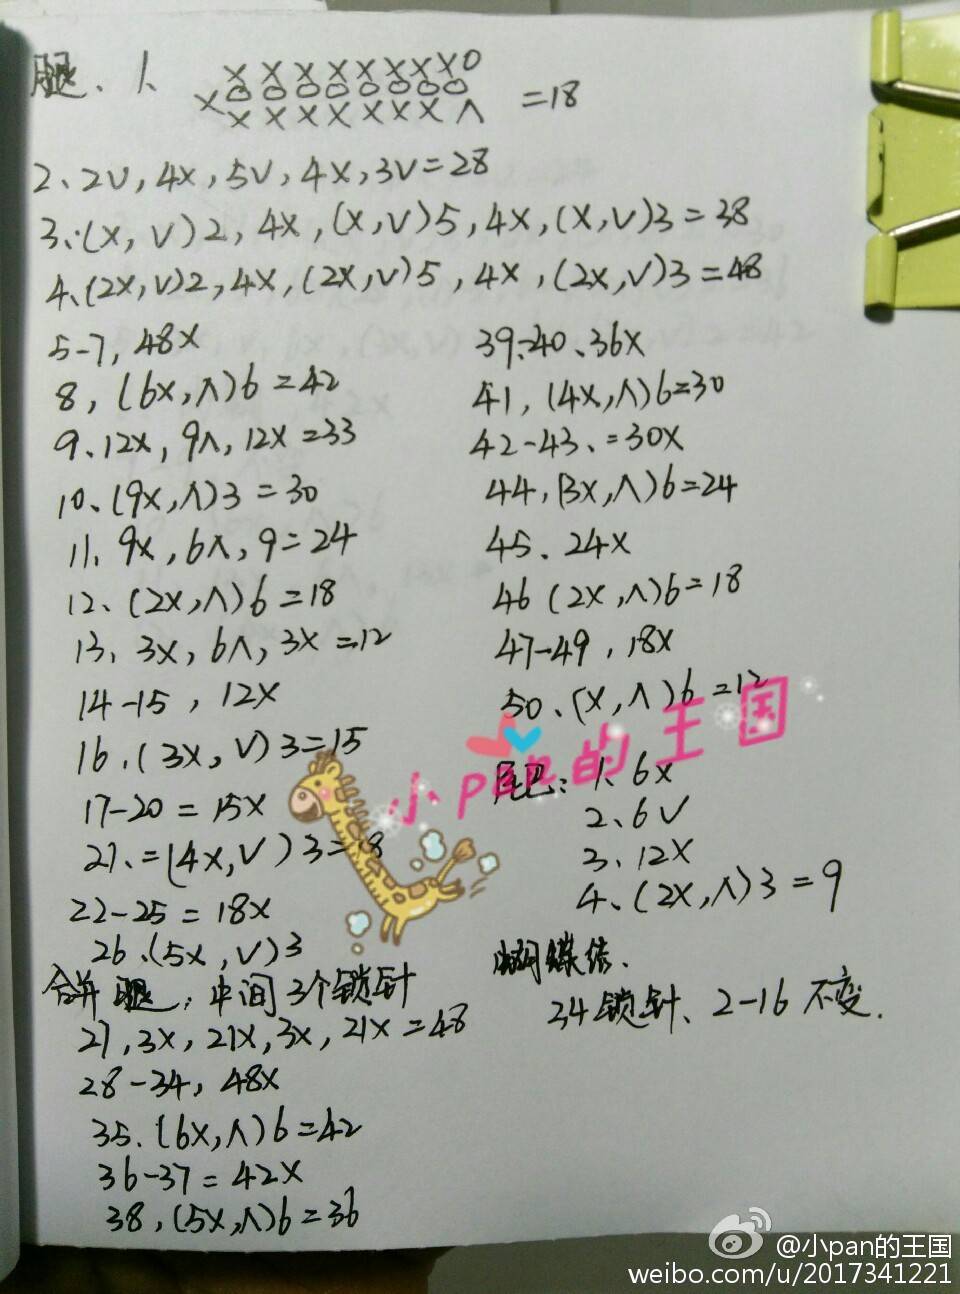 腿、1、
XXXXXXXXO
XOOOOOOOO
XXXXXXXΛ =18
2、2V,4X,5V,4X,3V=28
3、(X,V)2,4X,(X,V)5,4X,(X,V)3=38
4、(2X,V)2,4X,(2X,V)5,4X,(2X,V)3=48
5-7,48X
8,(6X,Λ)6=42
9、12X,9Λ,12X=33
10、(9X,Λ)3=30
11、9X,6Λ,9=24
12、(2X,Λ)6=18
13、3X,6Λ,3X=12
14-15,12X
16、(3X,V)3=15
17-20=15X
21、=(4X,V)3=18
22-25=18X
26、(5X,V)3
合并腿,中间3个锁针
27,3X,21X,3X,21X=48
28-34,48X
35、(6X,Λ)6=42
36-37=42X
38,(5X,Λ)6=36
39-40、36X
41,(4X,Λ)6=30
42-43、=30X
44,(3X,Λ)6=24
45、24X
46(2X,Λ)6=18
47-49,18X
50、(X,Λ)6=12
小pan的王国
尾巴:1、6X
2、6V
3、12X
4、(2X,Λ)3=9
蝴蝶结、
34锁针、2-16不变.
@小pan的王国
weibo.com/u/2017341221